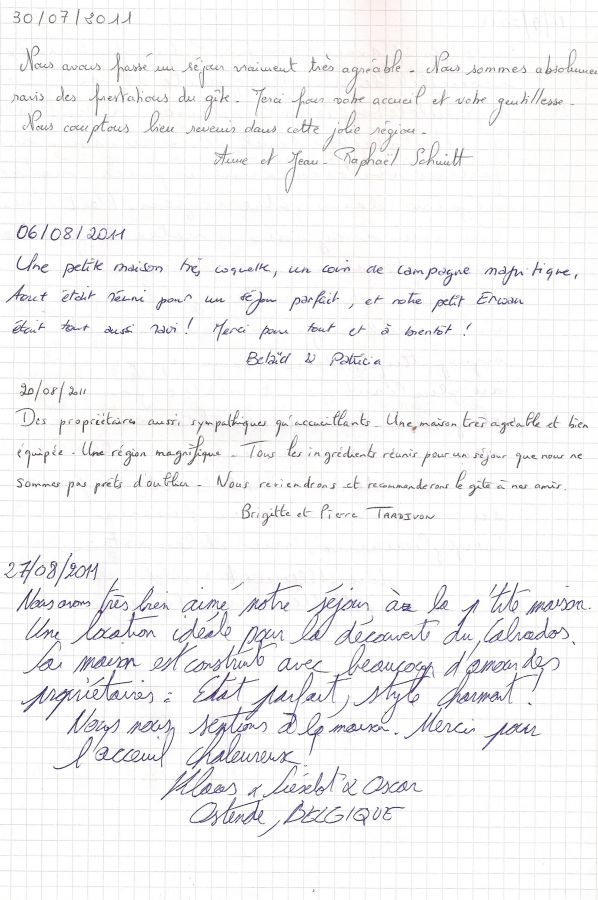 30/07/2011
Nous avons passé un séjour vraiment très agréable. Nous sommes absolumen
ravis des prestations du gîte. Merci pour votre accueil et votre gentillesse.
Nous comptons bien revenir dans cette jolie région.
Anne et Jean-Raphaël Schmitt
06/08/2011
Une petite maison très coquette, un coin de campagne magnifique,
tout était réuni pour un séjour parfait, et notre petit Erwan
était tout aussi ravi ! Merci pour tout et à bientôt !
Belaïd & Patricia
20/08/2011
Des propriétaires aussi sympathiques qu'accueillants. Une maison très agréable et bien
équipée. Une région magnifique. Tous les ingrédients réunis pour un séjour que nous ne
sommes pas prêts d'oublier. Nous reviendrons et recommanderons le gîte à nos amis.
Brigitte et Pierre TARDIVON
27/08/2011
Nous avons très bien aimé notre séjour à la p'tite maison.
Une location idéale pour la découverte du Calvados.
La maison est construite avec beaucoup d'amour des
propriétaires : Etat parfait, style charmant !
Nous nous sentions à la maison. Merci pour
l'acceuil chaleureux !
Klaas & Lieselot & Oscar
Ostende, BELGIQUE